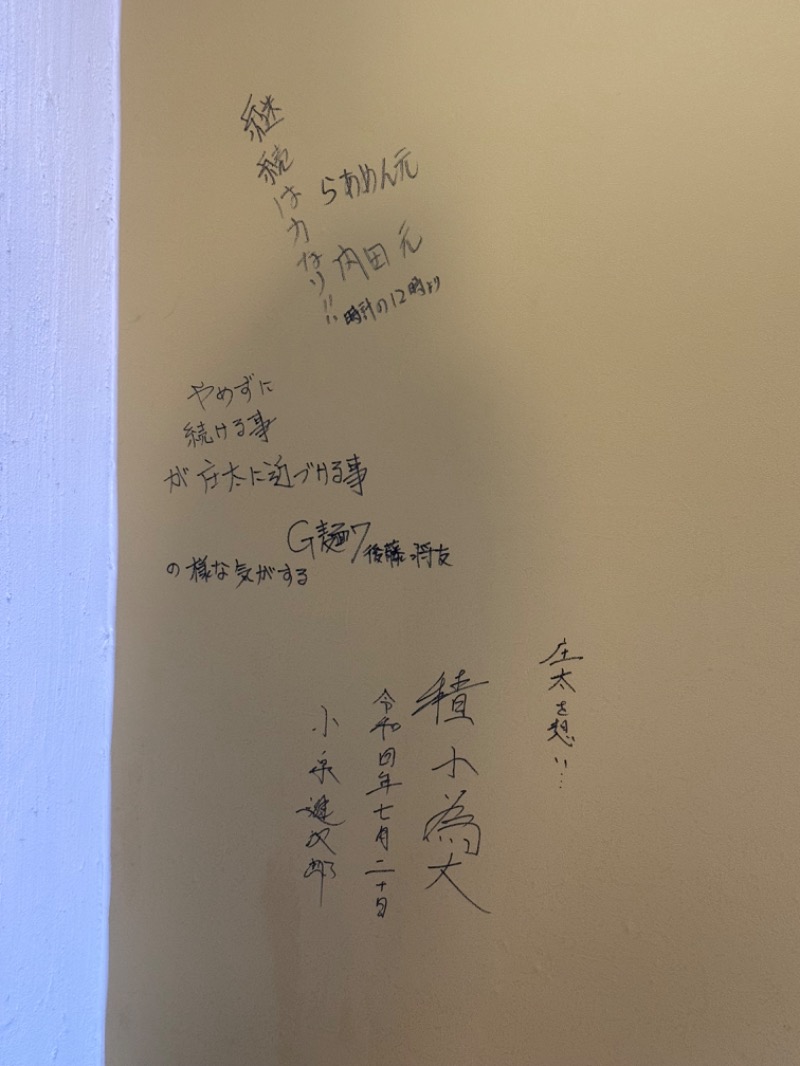 継続は力なり!!
らあめん元
内田元
時計の12時より
やめずに
続ける事
が庄太に近づける事
G麺7 後藤将友
の様な気がする
庄太を想い…
積小為大
令和四年七月二十日
小泉進次郎